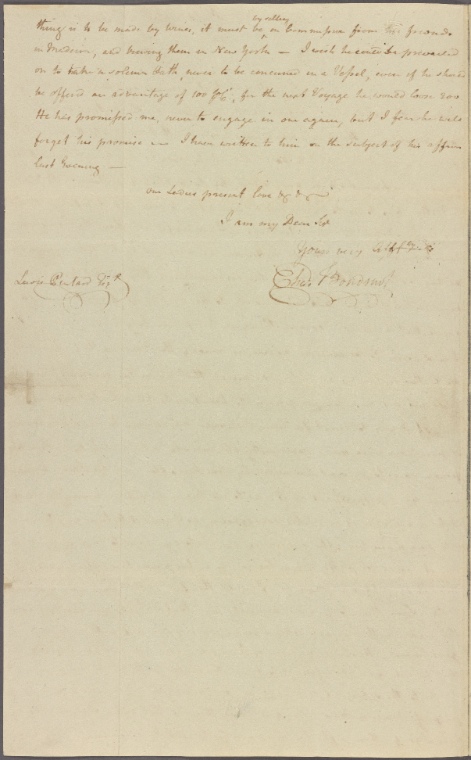 by selling
thing is to be made by wines, it must be, on Commission from his friends
in Madeira, and having them in New York — I wish he could be prevailed
on to take a solemn Oath, never to be concerned in a Vessel, even if he should
be offered an advantage of 100 for the next Voyage he would lose 200
He has promissed me, never to engage in one again, but I fear he will
forget his promise — I have written to him on the subject of his affairs
last Evening —
our Ladies present love &c &c —
I am my Dear Sir
Yours very Afftly
Lewis Pintard Esqr